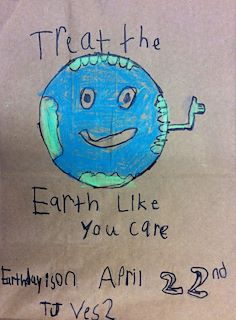 Treat the
Earth Like
you care
Earthday is on April 22nd
TJ